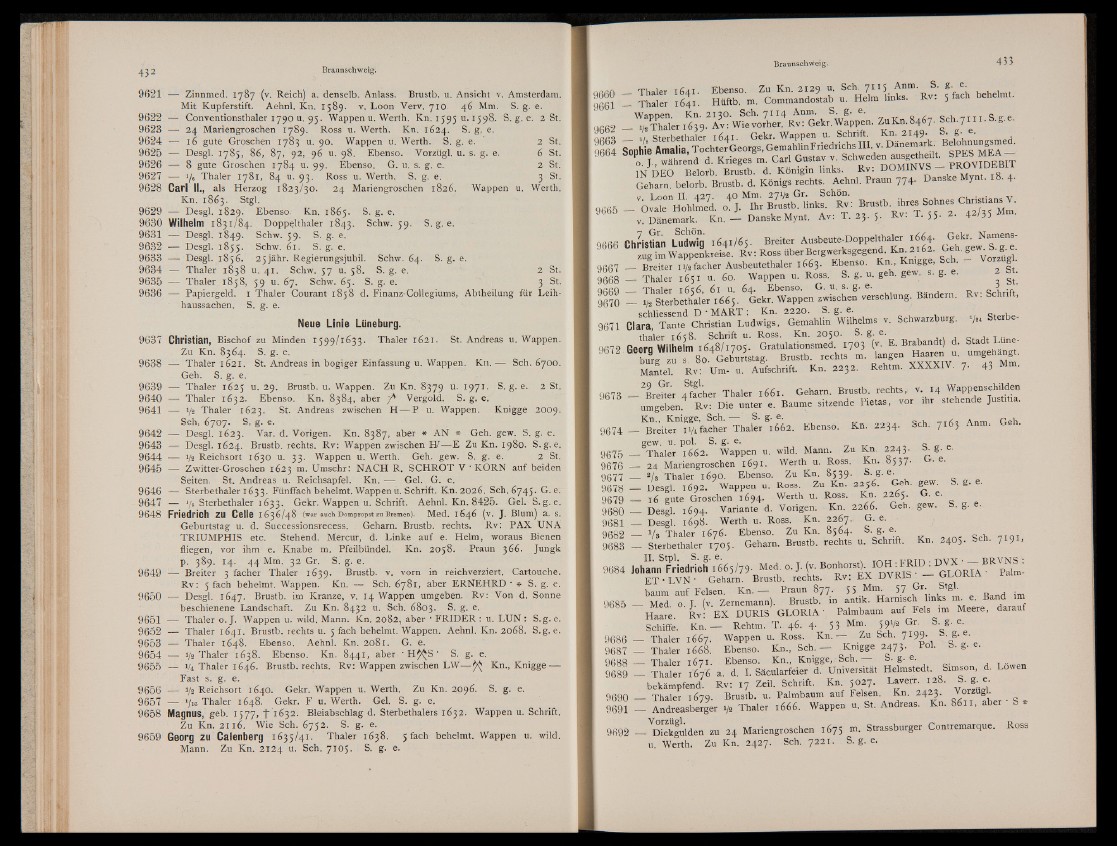 432
Braunschweig.
9621 — Zinnmed. 1787 (v. Reich) a. denselb. Anlass. Brustb. u. Ansicht v. Amsterdam.
Mit Kupferstift. Aehnl. Kn. 1589. v. Loon Verv. 710 46 Mm. S. g. e.
9622 — Conventionsthaler 1790 u. 95. Wappen u. Werth. Kn. 1595 u. 1598. S. g. e. 2 St.
9623 — 24 Mariengroschen 1789. Ross u. Werth. Kn. 1624. S. g. e.
9624 — 16 gute Groschen 1783 u. 90. Wappen u. Werth. S. g. e. 2 St.
9625 — Desgl. 1785, 86, 87, 92, 96 u. 98. Ebenso. Vorzügl. u. s. g. e. 6 St.
9626 — 8 gute Groschen 1784 u. 99. Ebenso. G. u. s. g. e. 2 St.
9627 — 1/6 Thaler 1781, 84 u. 93. Ross u. Werth. S. g. e. 3 St.
9628 Carl II., als Herzog 1823/30. 24 Mariengroschen 1826. Wappen u. Werth.
Kn. 1863. Stgl.
9629 — Desgl. 1829. Ebenso Kn. 1865. S. g. e.
9630 Wilhelm 1831/84. Doppelthaler 1843. Schw. 59. S. g. e.
9631 — Desgl. 1849. Schw. 59. S. g. e.
9632 — Desgl. 1855. Schw. 61. S. g. e.
9633 — Desgl. 1856. 25jähr. Regierungsjubil. Schw. 64. S. g. e.
9634 — Thaler 1838 u. 41. Schw. 57 u. 58. S. g. e. 2 St.
9635 — Thaler 1858, 59 u. 67. Schw. 65. S. g. e. 3 St.
9636 — Papiergeld. 1 Thaler Courant 1858 d. Finanz-Collegiums, Abtheilung für Leih-
haussachen. S. g. e.
Neue Linie Lüneburg.
9637 Christian, Bischof zu Minden 1599/1633. Thaler 1621. St. Andreas u. Wappen.
Zu Kn. 8364. S. g. e.
9638 — Thaler 1621. St. Andreas in bogiger Einfassung u. Wappen. Kn. — Sch. 6700.
Geh. S. g. e.
9639 — Thaler 1625 u. 29. Brustb. u. Wappen. Zu Kn. 8379 u. 1971. S. g. e. 2 St.
9640 — Thaler 1632. Ebenso. Kn. 8384, aber Vergold. S. g. e.
9641 — 1/2 Thaler 1623. St. Andreas zwischen H—P u. Wappen. Knigge 2009.
Sch. 6707. S. g. e.
9642 — Desgl. 1623. Var. d. Vorigen. Kn. 8387, aber * AN * Geh. gew. S. g. e.
9643 — Desgl. 1624. Brustb. rechts. Rv: Wappen zwischen H—E Zu Kn. 1980. S. g. e.
9644 — 1/2 Reichsort 1630 u. 33. Wappen u. Werth. Geh. gew. S. g. e. 2 St.
9645 — Zwitter-Groschen 1623 m. Umschr: NACH R. SCHROT V · KORN auf beiden
Seiten. St. Andreas u. Reichsapfel. Kn. — Gel. G. e.
9646 — Sterbethaler 1633. Fünffach behelmt. Wappen u. Schrift. Kn. 2026. Sch. 6745. G. e.
9647 — 1/4 Sterbethaler 1633. Gekr. Wappen u. Schrift. Aehnl. Kn. 8425. Gel. S. g. e.
9648 Friedrich zu Celle 1636/48 (war auch Dompropst zu Bremen). Med. 1646 (v. J. Blum) a. s.
Geburtstag u. d. Successionsrecess. Geharn. Brustb. rechts. Rv: PAX UNA
TRIUMPHIS etc. Stehend. Mercur, d. Linke auf e. Helm, woraus Bienen
fliegen, vor ihm e. Knabe m. Pfeilbündel. Kn. 2058. Praun 366. Jungk
p. 389. 14. 44 Mm. 32 Gr. S. g. e.
9649 — Breiter 3 facher Thaler 1639. Brustb. v. vorn in reichverziert. Cartouche.
Rv: 5 fach behelmt. Wappen. Kn. — Sch. 6781, aber ERNEHRD · * S. g. e.
9650 — Desgl. 1647. Brustb. im Kranze, v. 14 Wappen umgeben. Rv: Von d. Sonne
beschienene Landschaft. Zu Kn. 8432 u. Sch. 6803. S. g. e.
9651 — Thaler o. J. Wappen u. wild. Mann. Kn. 2082, aber · FRIDER : u. LUN : S. g. e.
9652 — Thaler 1641. Brustb. rechts u. 5 fach behelmt. Wappen. Aehnl. Kn. 2068. S. g. e.
9653 — Thaler 1648. Ebenso. Aehnl. Kn. 2081. G. e.
9654 — 1/2 Thaler 1638. Ebenso. Kn. 8441, aber · H S · S. g. e.
9655 — 1/4 Thaler 1646. Brustb. rechts. Rv: Wappen zwischen LW— Kn., Knigge —
Fast s. g. e.
9656 — 1/2 Reichsort 1640. Gekr. Wappen u. Werth. Zu Kn. 2096. S. g. e.
9657 — 1/12 Thaler 1648. Gekr. F u. Werth. Gel. S. g. e.
9658 Magnus, geb. 1577, † 1632. Bleiabschlag d. Sterbethalers 1632. Wappen u. Schrift.
Zu Kn. 2116. Wie Sch. 6752. S. g. e.
9659 Georg zu Calenberg 1635/41. Thaler 1638. 5 fach behelmt. Wappen u. wild.
Mann. Zu Kn. 2124 u. Sch. 7105. S. g. e.
Braunschweig.
433
9660 — Thaler 1641. Ebenso. Zu Kn. 2129 u. Sch. 7115 Anm. S. g. e.
9661 — Thaler 1641. Hüftb. m. Commandostab u. Helm links. Rv: 5 fach behelmt.
Wappen. Kn. 2130. Sch. 7114 Anm. S. g. e.
9662 — 1/2 Thaler 1639. Av: Wie vorher. Rv: Gekr. Wappen. Zu Kn. 8467. Sch. 7111. S. g. e.
9663 — 1/4 Sterbethaler 1641. Gekr. Wappen u. Schrift. Kn. 2149. S. g. e.
9664 Sophie Amalia, Tochter Georgs, Gemahlin Friedrichs III. v. Dänemark. Belohnungsmed.
o. J., während d. Krieges m. Carl Gustav v. Schweden ausgetheilt. SPES MEA —
IN DEO Belorb. Brustb. d. Königin links. Rv: DOMINVS — PROVIDEBIT
Geharn. belorb. Brustb. d. Königs rechts. Aehnl. Praun 774. Danske Mynt. 18. 4.
v. Loon II. 427. 40 Mm. 27 1/2 Gr. Schön.
9665 — Ovale Hohlmed. o. J. Ihr Brustb. links. Rv: Brustb. ihres Sohnes Christians V.
v. Dänemark. Kn. — Danske Mynt. Av: T. 23. 5. Rv: T. 55. 2. 42/35 Mm.
7 Gr. Schön.
9666 Christian Ludwig 1641/65. Breiter Ausbeute-Doppelthaler 1664. Gekr. Namens-
zug im Wappenkreise. Rv: Ross über Bergwerksgegend. Kn. 2162. Geh. gew. S. g. e.
9667 — Breiter 1 1/2 facher Ausbeutethaler 1663. Ebenso. Kn., Knigge, Sch. — Vorzügl.
9668 — Thaler 1651 u. 60. Wappen u. Ross. S. g. u. geh. gew. s. g. e. 2 St.
9669 — Thaler 1656, 61 u. 64. Ebenso. G. u. s. g. e. 3 St.
9670 — 1/2 Sterbethaler 1665. Gekr. Wappen zwischen verschlung. Bändern. Rv: Schrift,
schliessend D · MART : Kn. 2220. S. g. e.
9671 Clara, Tante Christian Ludwigs, Gemahlin Wilhelms v. Schwarzburg. 1/24 Sterbe-
thaler 1658. Schrift u. Ross. Kn. 2050. S. g. e.
9672 Georg Wilhelm 1648/1705. Gratulationsmed. 1703 (v. E. Brabandt) d. Stadt Lüne-
burg zu s. 80. Geburtstag. Brustb. rechts m. langen Haaren u. umgehängt.
Mantel. Rv: Um- u. Aufschrift. Kn. 2232. Rehtm. XXXXIV. 7. 43 Mm.
29 Gr. Stgl.
9673 — Breiter 4 facher Thaler 1661. Geharn. Brustb. rechts, v. 14 Wappenschilden
umgeben. Rv: Die unter e. Baume sitzende Pietas, vor ihr stehende Justitia.
Kn., Knigge, Sch. — S. g. e.
9674 — Breiter 1 1/4 facher Thaler 1662. Ebenso. Kn. 2234. Sch. 7163 Anm. Geh.
gew. u. pol. S. g. e.
9675 — Thaler 1662. Wappen u. wild. Mann. Zu Kn. 2243. S. g. e.
9676 — 24 Mariengroschen 1691. Werth u. Ross. Kn. 8537. G. e.
9677 — 2/3 Thaler 1690. Ebenso. Zu Kn. 8539. S. g. e.
9678 — Desgl. 1692. Wappen u. Ross. Zu Kn. 2256. Geh. gew. S. g. e.
9679 — 16 gute Groschen 1694. Werth u. Ross. Kn. 2265. G. e.
9680 — Desgl. 1694. Variante d. Vorigen. Kn. 2266. Geh. gew. S. g. e.
9681 — Desgl. 1698. Werth u. Ross. Kn. 2267. G. e.
9682 — 1/3 Thaler 1676. Ebenso. Zu Kn. 8564. S. g. e.
9683 — Sterbethaler 1705. Geharn. Brustb. rechts u. Schrift. Kn. 2405. Sch. 7191,
II. Stpl. S. g. e.
9684 Johann Friedrich 1665/79. Med. o. J. (v. Bonhorst). IOH : FRID : DVX · — BRVNS :
ET · LVN · Geharn. Brustb. rechts. Rv: EX DVRIS · — GLORIA · Palm-
baum auf Felsen. Kn. — Praun 877. 55 Mm. 57 Gr. Stgl.
9685 — Med. o. J. (v. Zernemann). Brustb. in antik. Harnisch links m. e. Band im
Haare. Rv: EX DURIS GLORIA · Palmbaum auf Fels im Meere, darauf
Schiffe. Kn. — Rehtm. T. 46. 4. 53 Mm. 59 1/2 Gr. S. g. e.
9686 — Thaler 1667. Wappen u. Ross. Kn. — Zu Sch. 7199. S. g. e.
9687 — Thaler 1668. Ebenso. Kn., Sch. — Knigge 2473. Pol. S. g. e.
9688 — Thaler 1671. Ebenso. Kn., Knigge, Sch. — S. g. e.
9689 — Thaler 1676 a. d. I. Säcularfeier d. Universität Helmstedt. Simson, d. Löwen
bekämpfend. Rv: 17 Zeil. Schrift. Kn. 5027. Laverr. 128. S. g. e.
9690 — Thaler 1679. Brustb. u. Palmbaum auf Felsen. Kn. 2423. Vorzügl.
9691 — Andreasberger 1/2 Thaler 1666. Wappen u. St. Andreas. Kn. 8611, aber · S *
Vorzügl.
9692 — Dickgulden zu 24 Mariengroschen 1675 m. Strassburger Contremarque. Ross
u. Werth. Zu Kn. 2427. Sch. 7221. S. g. e.